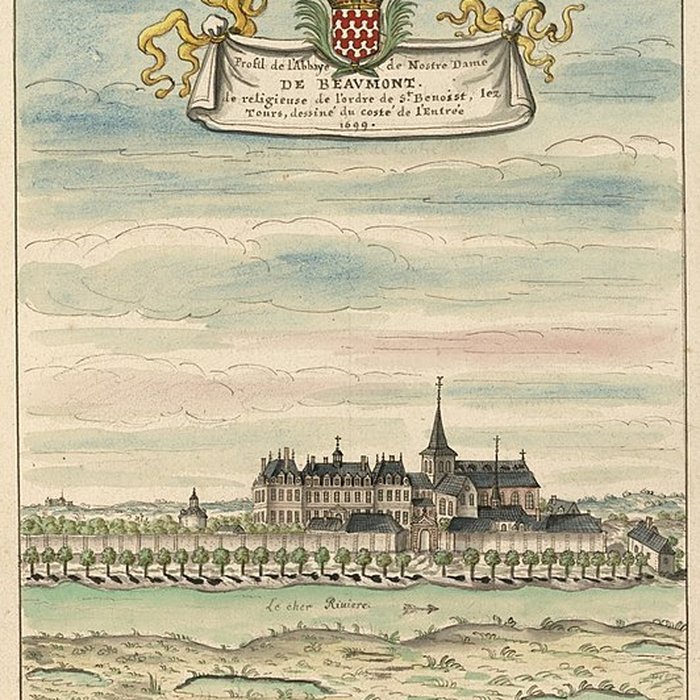 Profil de l'Abbaye de Nostre Dame
DE BEAVMONT.
de religieuse de l'ordre de St. Benoist, lez
Tours, dessiné du costé de l'Entrée
1699.
Le cher Riuiere.